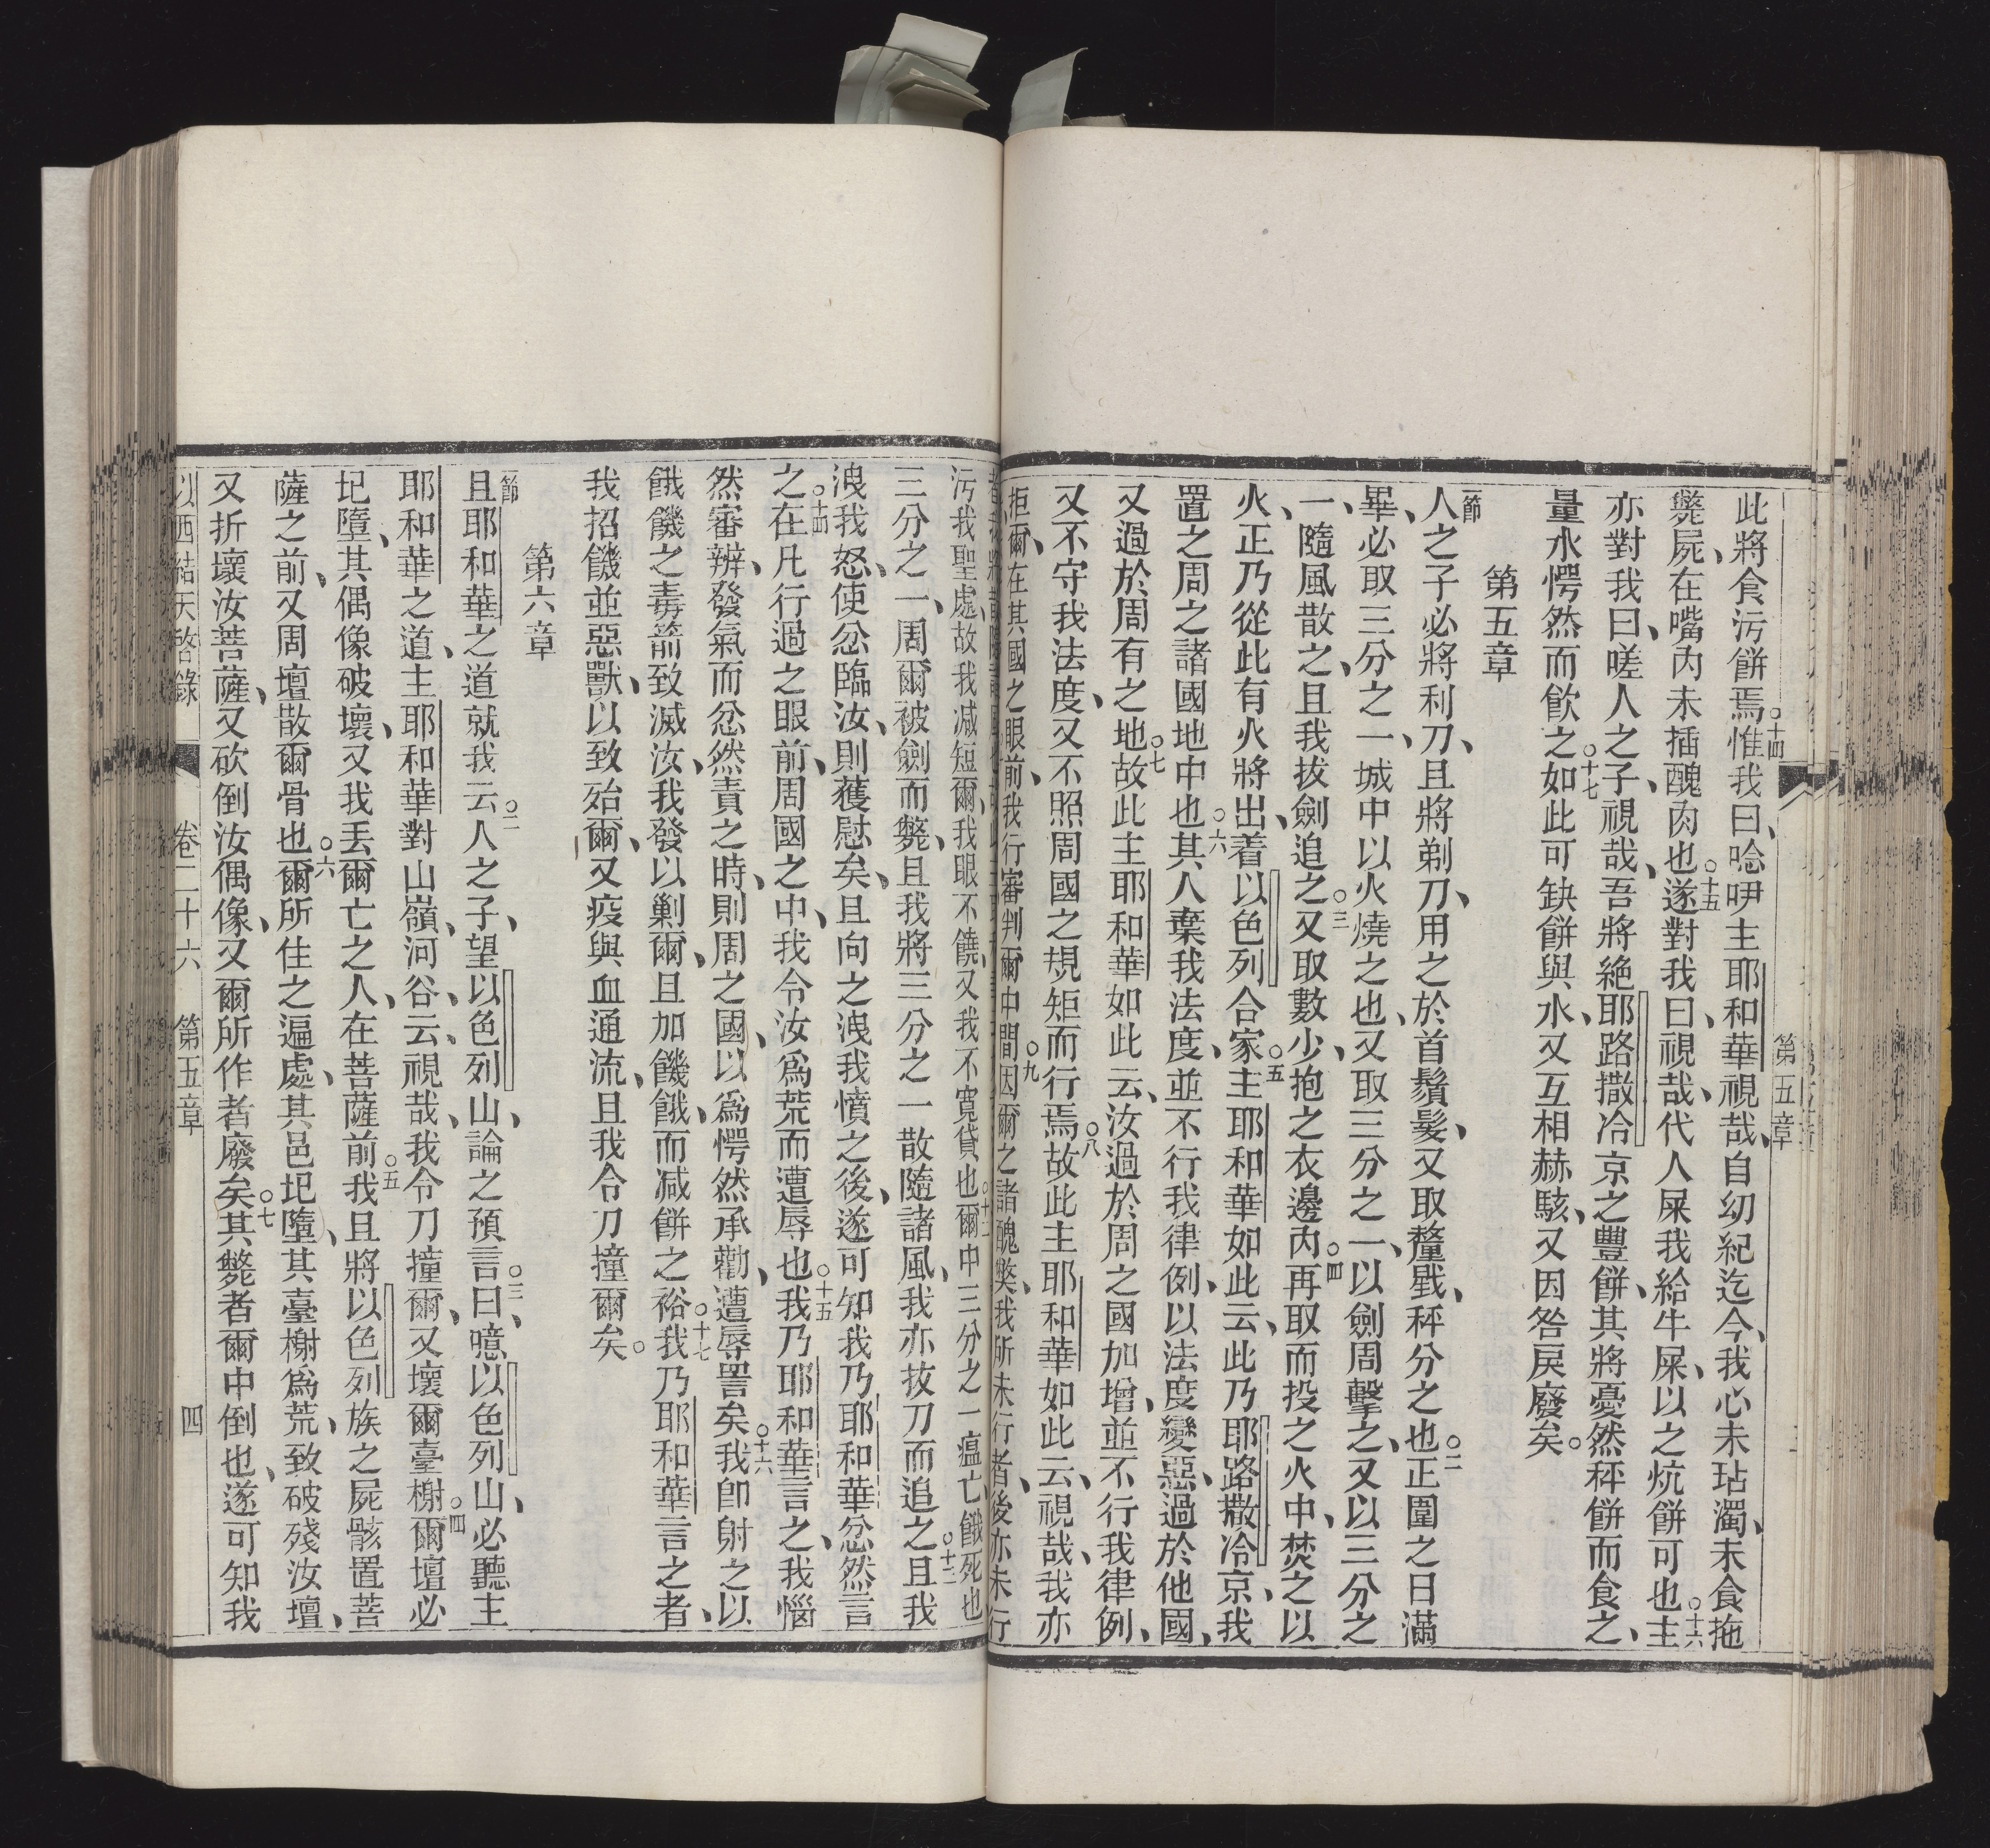 此將食污餅焉。十四惟我曰、唸咿主耶和華視哉、自幼紀迄今、我心未玷濁、未食拖
斃屍、在嘴內未插醜肉也。十五遂對我曰、視哉、代人屎我給牛屎、以之炕餅可也。十六主
亦對我曰、嗟人之子、視哉、吾將絕耶路撒冷京之豐餅、其將憂然秤餅而食之、
量水愕然而飲之。十七如此可缺餅與水、又互相赫駭、又因咎戾廢矣。
第五章
一節人之子必將利刀、且將剃刀、用之於首鬚髮、又取釐戥、秤分之也。二正圍之日滿
畢、必取三分之一、城中以火燒之也、又取三分之一、以劍周擊之、又以三分之
一、隨風散之、且我拔劍追之。三又取數少、抱之衣邊內。四再取而投之火中、焚之以
火、正乃從此有火將出、着以色列合家。五主耶和華如此云、此乃耶路撒冷京、我
置之周之諸國地中也。六其人棄我法度、並不行我律例、以法度變惡、過於他國、
又過於周有之地。七故此主耶和華如此云、汝過於周之國加增、並不行我律例、
又不守我法度、又不照周國之規矩而行焉。八故此主耶和華如此云、視哉、我亦
拒爾、在其國之眼前、我行審判爾中間。九因爾之諸醜獘、我所未行者、後亦未行
污我聖處、故我減短爾、我眼不饒、又我不寬貸也。十二爾中三分之一瘟亡、餓死也
三分之一、周爾被劍而斃、且我將三分之一散隨諸風、我亦拔刀而追之。十三且我
洩我怒、使忿臨汝、則獲慰矣、且向之洩我憤之後、遂可知我乃耶和華忿然言
之。十四在凡行過之眼前、周國之中、我令汝爲荒而遭辱也。十五我乃耶和華言之、我惱
然審辨、發氣而忿然責之時、則周之國、以爲愕然承勸、遭辱詈矣。十六我卽射之以
餓饑之毒箭、致滅汝、我發以剿爾、且加饑餓、而減餅之裕。十七我乃耶和華言之者、
我招饑並惡獸、以致殆爾、又疫與血通流、且我令刀撞爾矣。
第六章
一節且耶和華之道就我云。二人之子、望以色列山、論之預言。三曰、噫以色列山、必聽主
耶和華之道、主耶和華對山嶺、河谷、云、視哉、我令刀撞爾、又壞爾臺榭。四爾壇必
圮墮、其偶像破壞、又我丟爾亡之人、在菩薩前。五我且將以色列族之屍骸置菩
薩之前、又周壇散爾骨也。六爾所住之遍處、其邑圮墮、其臺榭爲荒、致破殘汝壇、
又折壞汝菩薩、又砍倒汝偶像、又爾所作者廢矣。七其斃者爾中倒也、遂可知我
以西結天啓錄 卷二十六 第五章 四
第五章